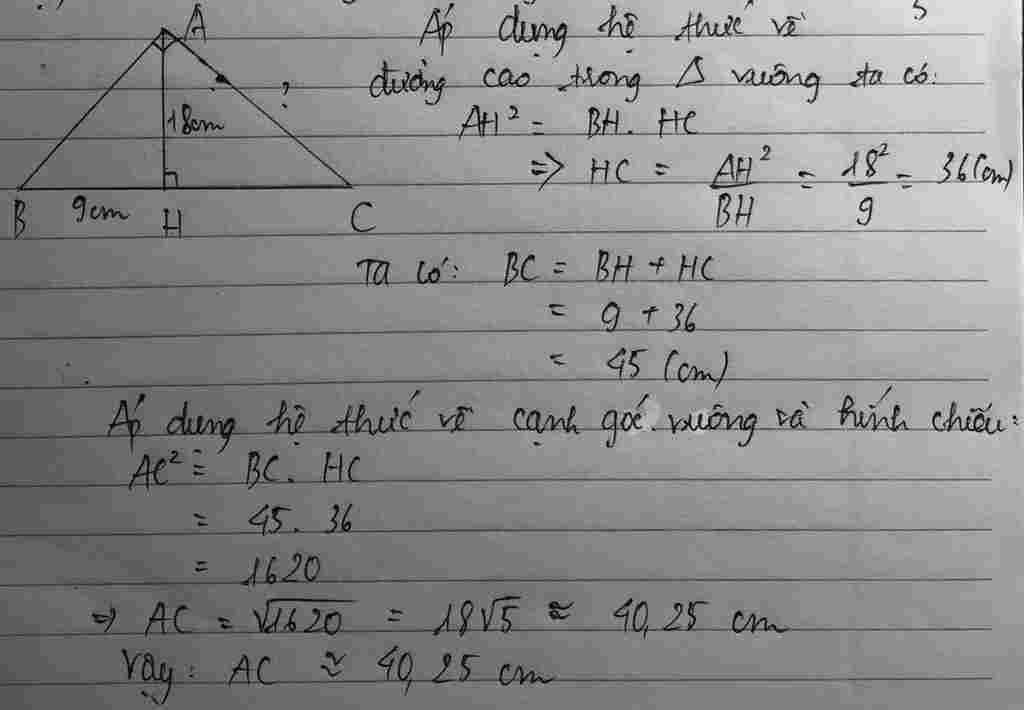 A
Áp dụng hệ thức về
đường cao trong Δ vuông ta có:
?
18cm
AH² = BH. HC
=> HC = AH²/BH = 18²/9 = 36(cm)
B 9cm H C
Ta có: BC = BH + HC
= 9 + 36
= 45 (cm)
Áp dung hệ thức về cạnh góc vuông và hình chiếu:
AC² = BC. HC
= 45. 36
= 1620
=> AC = √1620 = 18√5 ≈ 40,25 cm
Vậy: AC ≈ 40,25 cm